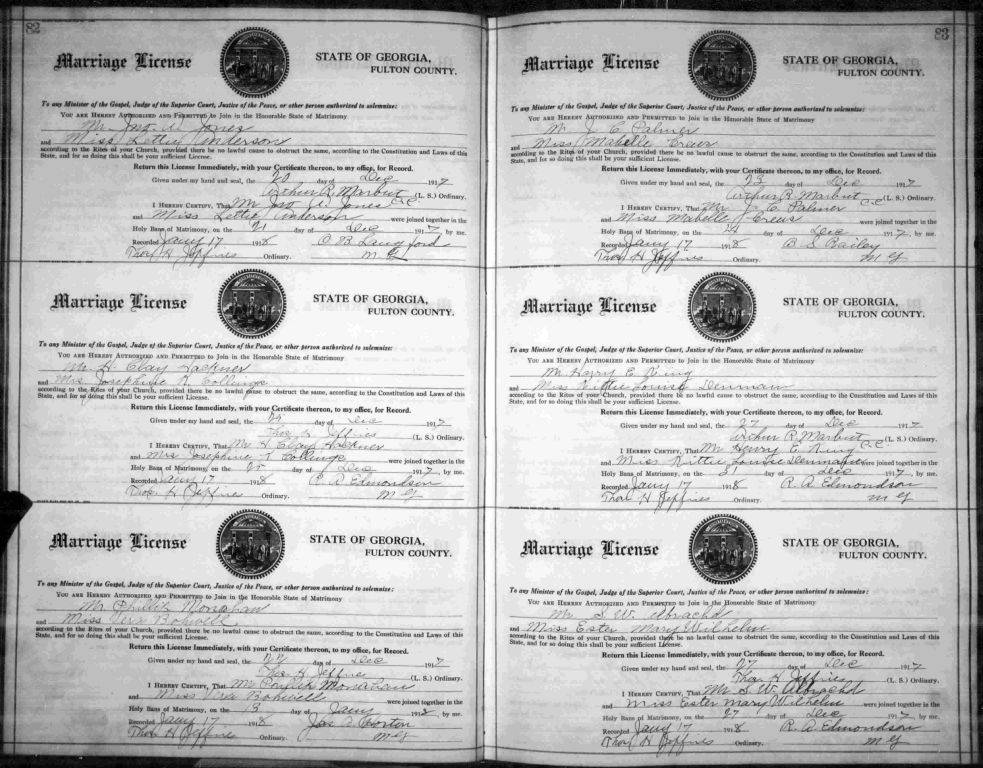 82
Marriage License
STATE OF GEORGIA,
FULTON COUNTY.
To any Minister of the Gospel, Judge of the Superior Court, Justice of the Peace, or other person authorized to solemnize:
YOU ARE HEREBY AUTHORIZED AND PERMITTED to Join in the Honorable State of Matrimony
Mr. Jno. W. Jones
and Miss Lettie Anderson
according to the Rites of your Church, provided there be no lawful cause to obstruct the same, according to the Constitution and Laws of this
State, and for so doing this shall be your sufficient License.
Return this License Immediately, with your Certificate thereon, to my office, for Record.
Given under my hand and seal, the 20 day of Dec 1917
Arthur R. Marbut (L. S.) Ordinary.
C.C.
I HEREBY CERTIFY, That Mr Jno W. Jones
and Miss Lettie Anderson were joined together in the
Holy Bans of Matrimony, on the 21 day of Dec 1917, by me.
Recorded Jany 17 1918 O B Langford
Thos H Jeffries Ordinary. M G
Marriage License
STATE OF GEORGIA,
FULTON COUNTY.
To any Minister of the Gospel, Judge of the Superior Court, Justice of the Peace, or other person authorized to solemnize:
YOU ARE HEREBY AUTHORIZED AND PERMITTED to Join in the Honorable State of Matrimony
Mr. H. Clay
and Mrs Josephine
according to the Rites of your Church, provided there be no lawful cause to obstruct the same, according to the Constitution and Laws of this
State, and for so doing this shall be your sufficient License.
Return this License Immediately, with your Certificate thereon, to my office, for Record.
Given under my hand and seal, the day of Dec 1917
Thos H Jeffries (L. S.) Ordinary.
I HEREBY CERTIFY, That Mr H Clay
and Mrs Josephine were joined together in the
Holy Bans of Matrimony, on the day of Dec 1917, by me.
Recorded Jany 17 1918 R. A. Edmondson
Thos H Jeffries Ordinary. M G
Marriage License
STATE OF GEORGIA,
FULTON COUNTY.
To any Minister of the Gospel, Judge of the Superior Court, Justice of the Peace, or other person authorized to solemnize:
YOU ARE HEREBY AUTHORIZED AND PERMITTED to Join in the Honorable State of Matrimony
Mr Phillip Monahan
and Miss Vera
according to the Rites of your Church, provided there be no lawful cause to obstruct the same, according to the Constitution and Laws of this
State, and for so doing this shall be your sufficient License.
Return this License Immediately, with your Certificate thereon, to my office, for Record.
Given under my hand and seal, the 27 day of Dec 1917
Thos H Jeffries (L. S.) Ordinary.
I HEREBY CERTIFY, That Mr Phillip Monahan
and Miss Vera were joined together in the
Holy Bans of Matrimony, on the 13 day of Jany 1918, by me.
Recorded Jany 17 1918
Thos H Jeffries Ordinary. M G
83
Marriage License
STATE OF GEORGIA,
FULTON COUNTY.
To any Minister of the Gospel, Judge of the Superior Court, Justice of the Peace, or other person authorized to solemnize:
YOU ARE HEREBY AUTHORIZED AND PERMITTED to Join in the Honorable State of Matrimony
Mr. J. C. Palmer
and Miss Mabelle Crews
according to the Rites of your Church, provided there be no lawful cause to obstruct the same, according to the Constitution and Laws of this
State, and for so doing this shall be your sufficient License.
Return this License Immediately, with your Certificate thereon, to my office, for Record.
Given under my hand and seal, the 23 day of Dec 1917
Arthur R Marbut (L. S.) Ordinary.
C.C.
I HEREBY CERTIFY, That Mr J. C. Palmer
and Miss Mabelle Crews were joined together in the
Holy Bans of Matrimony, on the 24 day of Dec 1917, by me.
Recorded Jany 17 1918 B S Bailey
Thos H Jeffries Ordinary. M G
Marriage License
STATE OF GEORGIA,
FULTON COUNTY.
To any Minister of the Gospel, Judge of the Superior Court, Justice of the Peace, or other person authorized to solemnize:
YOU ARE HEREBY AUTHORIZED AND PERMITTED to Join in the Honorable State of Matrimony
Mr Harry E King
and Miss Kittie Louise Denman
according to the Rites of your Church, provided there be no lawful cause to obstruct the same, according to the Constitution and Laws of this
State, and for so doing this shall be your sufficient License.
Return this License Immediately, with your Certificate thereon, to my office, for Record.
Given under my hand and seal, the 27 day of Dec 1917
Arthur R. Marbut (L. S.) Ordinary.
C.C.
I HEREBY CERTIFY, That Mr Henry E King
and Miss Kittie Louise Denman were joined together in the
Holy Bans of Matrimony, on the 31 day of Dec 1917, by me.
Recorded Jany 17 1918 R. A. Edmondson
Thos H Jeffries Ordinary. M G
Marriage License
STATE OF GEORGIA,
FULTON COUNTY.
To any Minister of the Gospel, Judge of the Superior Court, Justice of the Peace, or other person authorized to solemnize:
YOU ARE HEREBY AUTHORIZED AND PERMITTED to Join in the Honorable State of Matrimony
Mr S. W. Albrachd
and Miss Ester Mary Wilhelm
according to the Rites of your Church, provided there be no lawful cause to obstruct the same, according to the Constitution and Laws of this
State, and for so doing this shall be your sufficient License.
Return this License Immediately, with your Certificate thereon, to my office, for Record.
Given under my hand and seal, the 27 day of Dec 1917
Thos H Jeffries (L. S.) Ordinary.
I HEREBY CERTIFY, That Mr S. W. Albrachd
and Miss Ester Mary Wilhelm were joined together in the
Holy Bans of Matrimony, on the 27 day of Dec 1917, by me.
Recorded Jany 17 1918 R. A. Edmondson
Thos H Jeffries Ordinary. M G